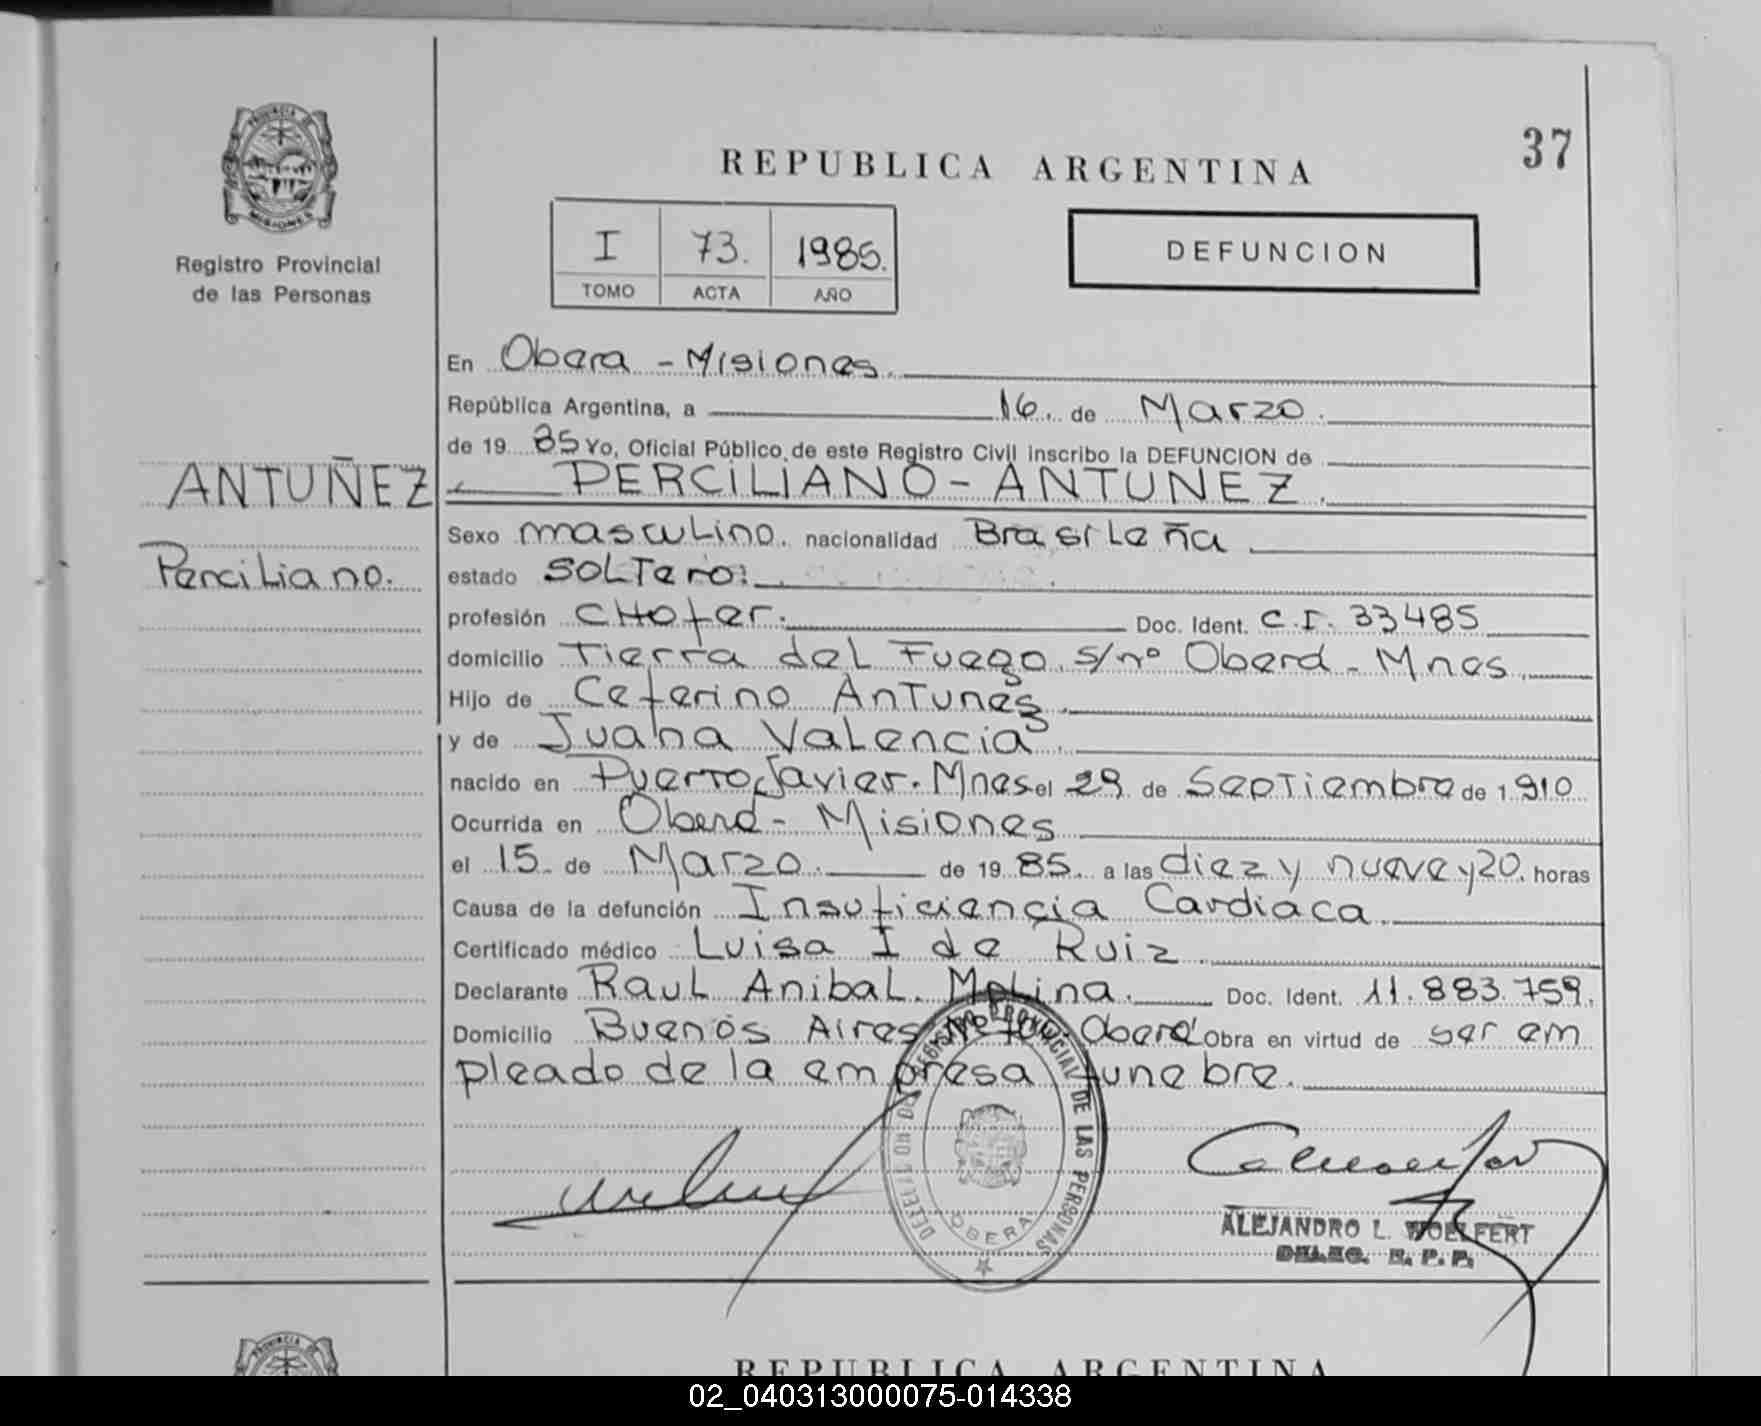 PROVINCIA DE
MISIONES
Registro Provincial
de las Personas
37
REPUBLICA ARGENTINA
I 73. 1985.
TOMO ACTA AÑO
DEFUNCION
En Obera - Misiones.
República Argentina, a 16. de Marzo.
de 19 85 Yo, Oficial Público de este Registro Civil inscribo la DEFUNCION de
ANTUÑEZ
PERCILIANO - ANTUNEZ.
Perciliano.
Sexo masculino. nacionalidad Brasileña
estado soltero.
profesión CHofer. Doc. Ident. C.I. 33485
domicilio Tierra del Fuego s/nº Oberá - Mnes.
Hijo de Ceferino Antunes.
y de Juana Valencia.
nacido en Puerto Javier. Mnes el 29 de Septiembre de 1.910
Ocurrida en Oberá - Misiones
el 15. de Marzo. de 19 85. a las diez y nueve y 20. horas
Causa de la defunción Insuficiencia Cardiaca.
Certificado médico Luisa I de Ruiz.
Declarante Raul Anibal. Molina. Doc. Ident. 11.883.759.
Domicilio Buenos Aires Nº Oberá Obra en virtud de ser em
pleado de la empresa funebre.
REGISTRO PROVINCIAL DE LAS PERSONAS
OBERA
ALEJANDRO L. WOELFERT
DELEG. R. P. P.
PROVINCIA
REPUBLICA ARGENTINA
02_040313000075-014338